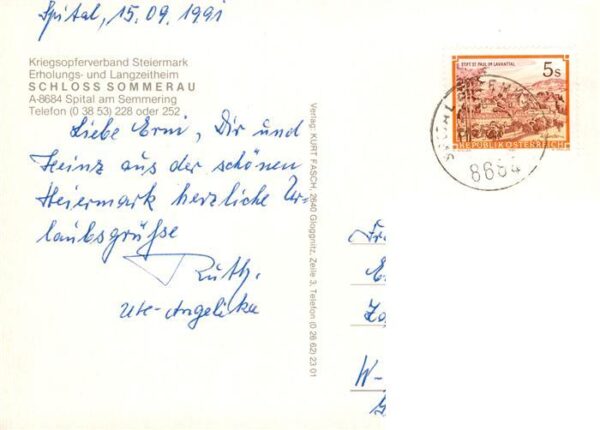 Spital, 15.09.1991
Kriegsopferverband Steiermark
Erholungs- und Langzeitheim
SCHLOSS SOMMERAU
A-8684 Spital am Semmering
Telefon (0 38 53) 228 oder 252
Liebe Erni, Dir und
Heinz aus der schönen
Steiermark herzliche Ur-
laubsgrüße
Ruth.
Ute-Angelika
Verlag: KURT FASCH, 2640 Gloggnitz, Zeile 3, Telefon (0 26 62) 23 01
STIFT ST. PAUL IM LAVANTTAL
5 S
REPUBLIK ÖSTERREICH
8684
Fr
E
W-